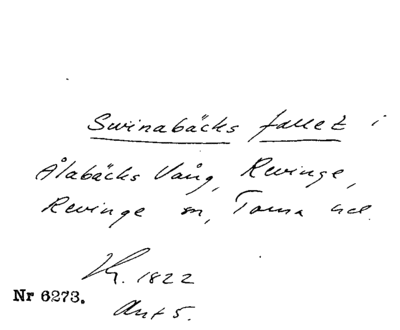 Swinabäcks fallet i
Ålabäcks Vång, Revinge,
Revinge sn, Torna hd.
1822
Nr 6273.
Akt 5.